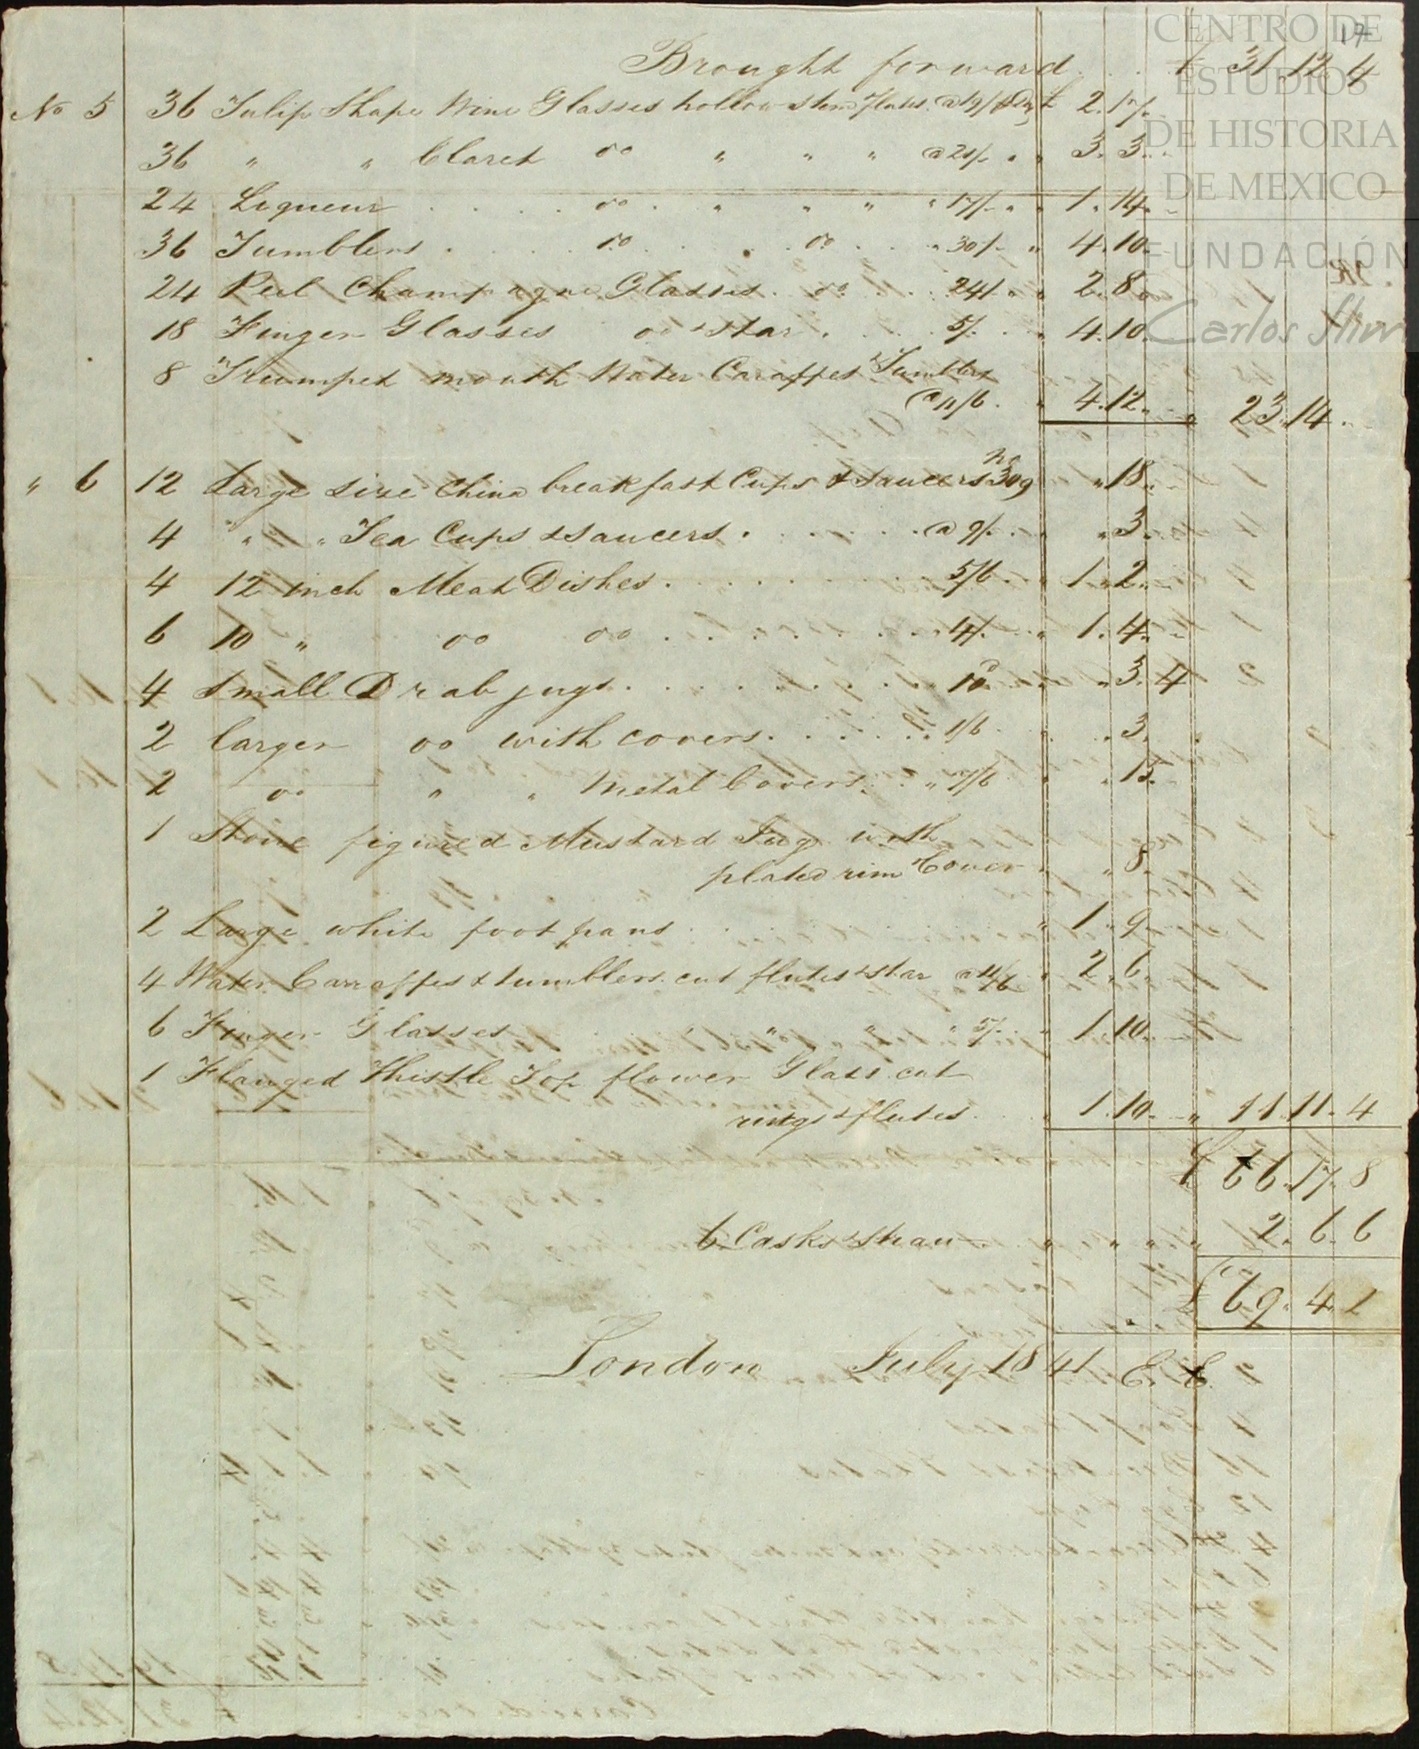 CENTRO DE
ESTUDIOS
DE HISTORIA
DE MEXICO
FUNDACIÓN
Carlos Slim
17
Brought forward . . . £ 31.12.4
No 5 36 Tulip Shape Wine Glasses hollow stem flutes a 19/ £ 2.17.
36 " " Claret do " " " a 21/. " " 3.3..
24 Liqueur . . . . do . " " " " 17/. " " 1.14.
36 Tumblers . . . do . . . do . . " 30/. " 4.10.
24 Peel Champagne Glasses . do . . . 24/. " " 2.8.
18 Finger Glasses do & star . . . 5/. . " 4.10.
8 Trumpet mouth Water Caraffes & Tumblers
@ 11/6 . " 4.12. " 23.14.
" 6 12 Large size China breakfast Cups & saucers No 309 " 18.
4 " " Tea Cups & saucers . . . . . a 9/. . " " 3.
4 12 inch Meat Dishes . . . . . . . 5/6 . " 1.2.
6 10 " do do . . . . . . . 4/. . " 1.4.
4 small Drab jugs . . . . . . . 10d " " 3.4
2 larger do with covers . . . . . " 1/6 . " 3.
2 do " " Metal Covers . . " 7/6 " " 15.
1 Stone figured Mustard Jug with
plated rim & Cover " " 8.
2 Large white foot pans . . . " 1.9.
4 Water Carraffes & tumblers cut flutes & star a 11/6 " 2.6.
6 Finger Glasses " " " 5/. . " 1.10.
1 Flanged Thistle Top flower Glass cut
rings & flutes . . " 1.10. " 11.11.4
£ 66.17.8
6 Casks & straw " " " " " 2.6.6
£ 69.4.2
London July 1841 E. E.